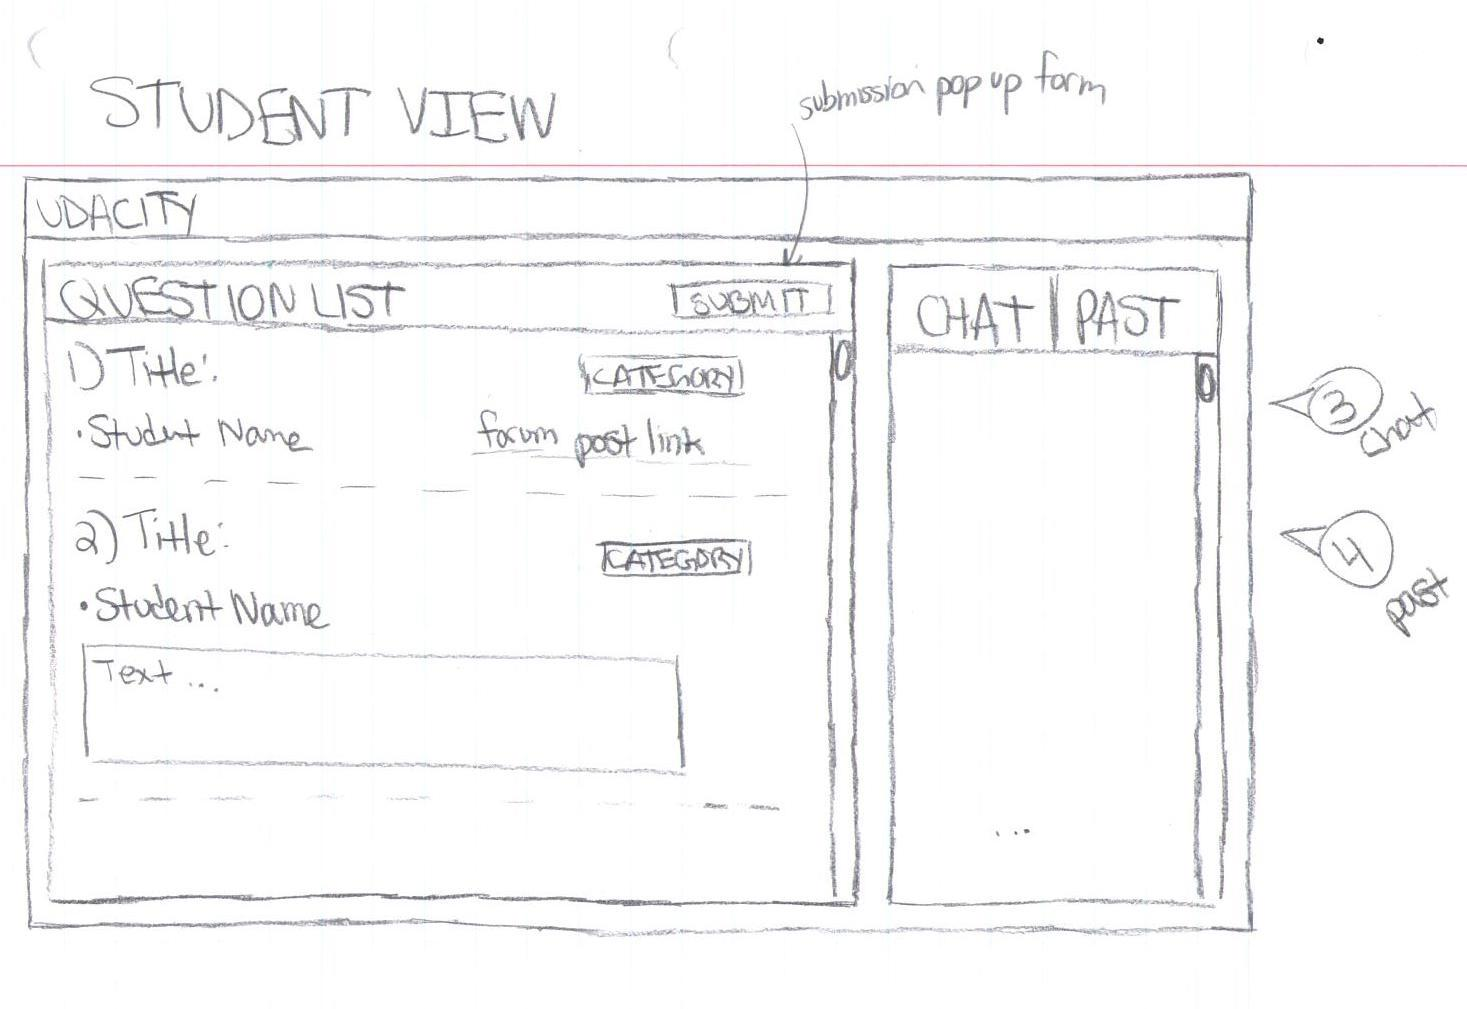 STUDENT VIEW
submission pop up form
UDACITY
QUESTION LIST
SUBMIT
1) Title:
CATEGORY
• Student Name
forum post link
2) Title:
CATEGORY
• Student Name
Text ...
CHAT | PAST
...
3
chat
4
past